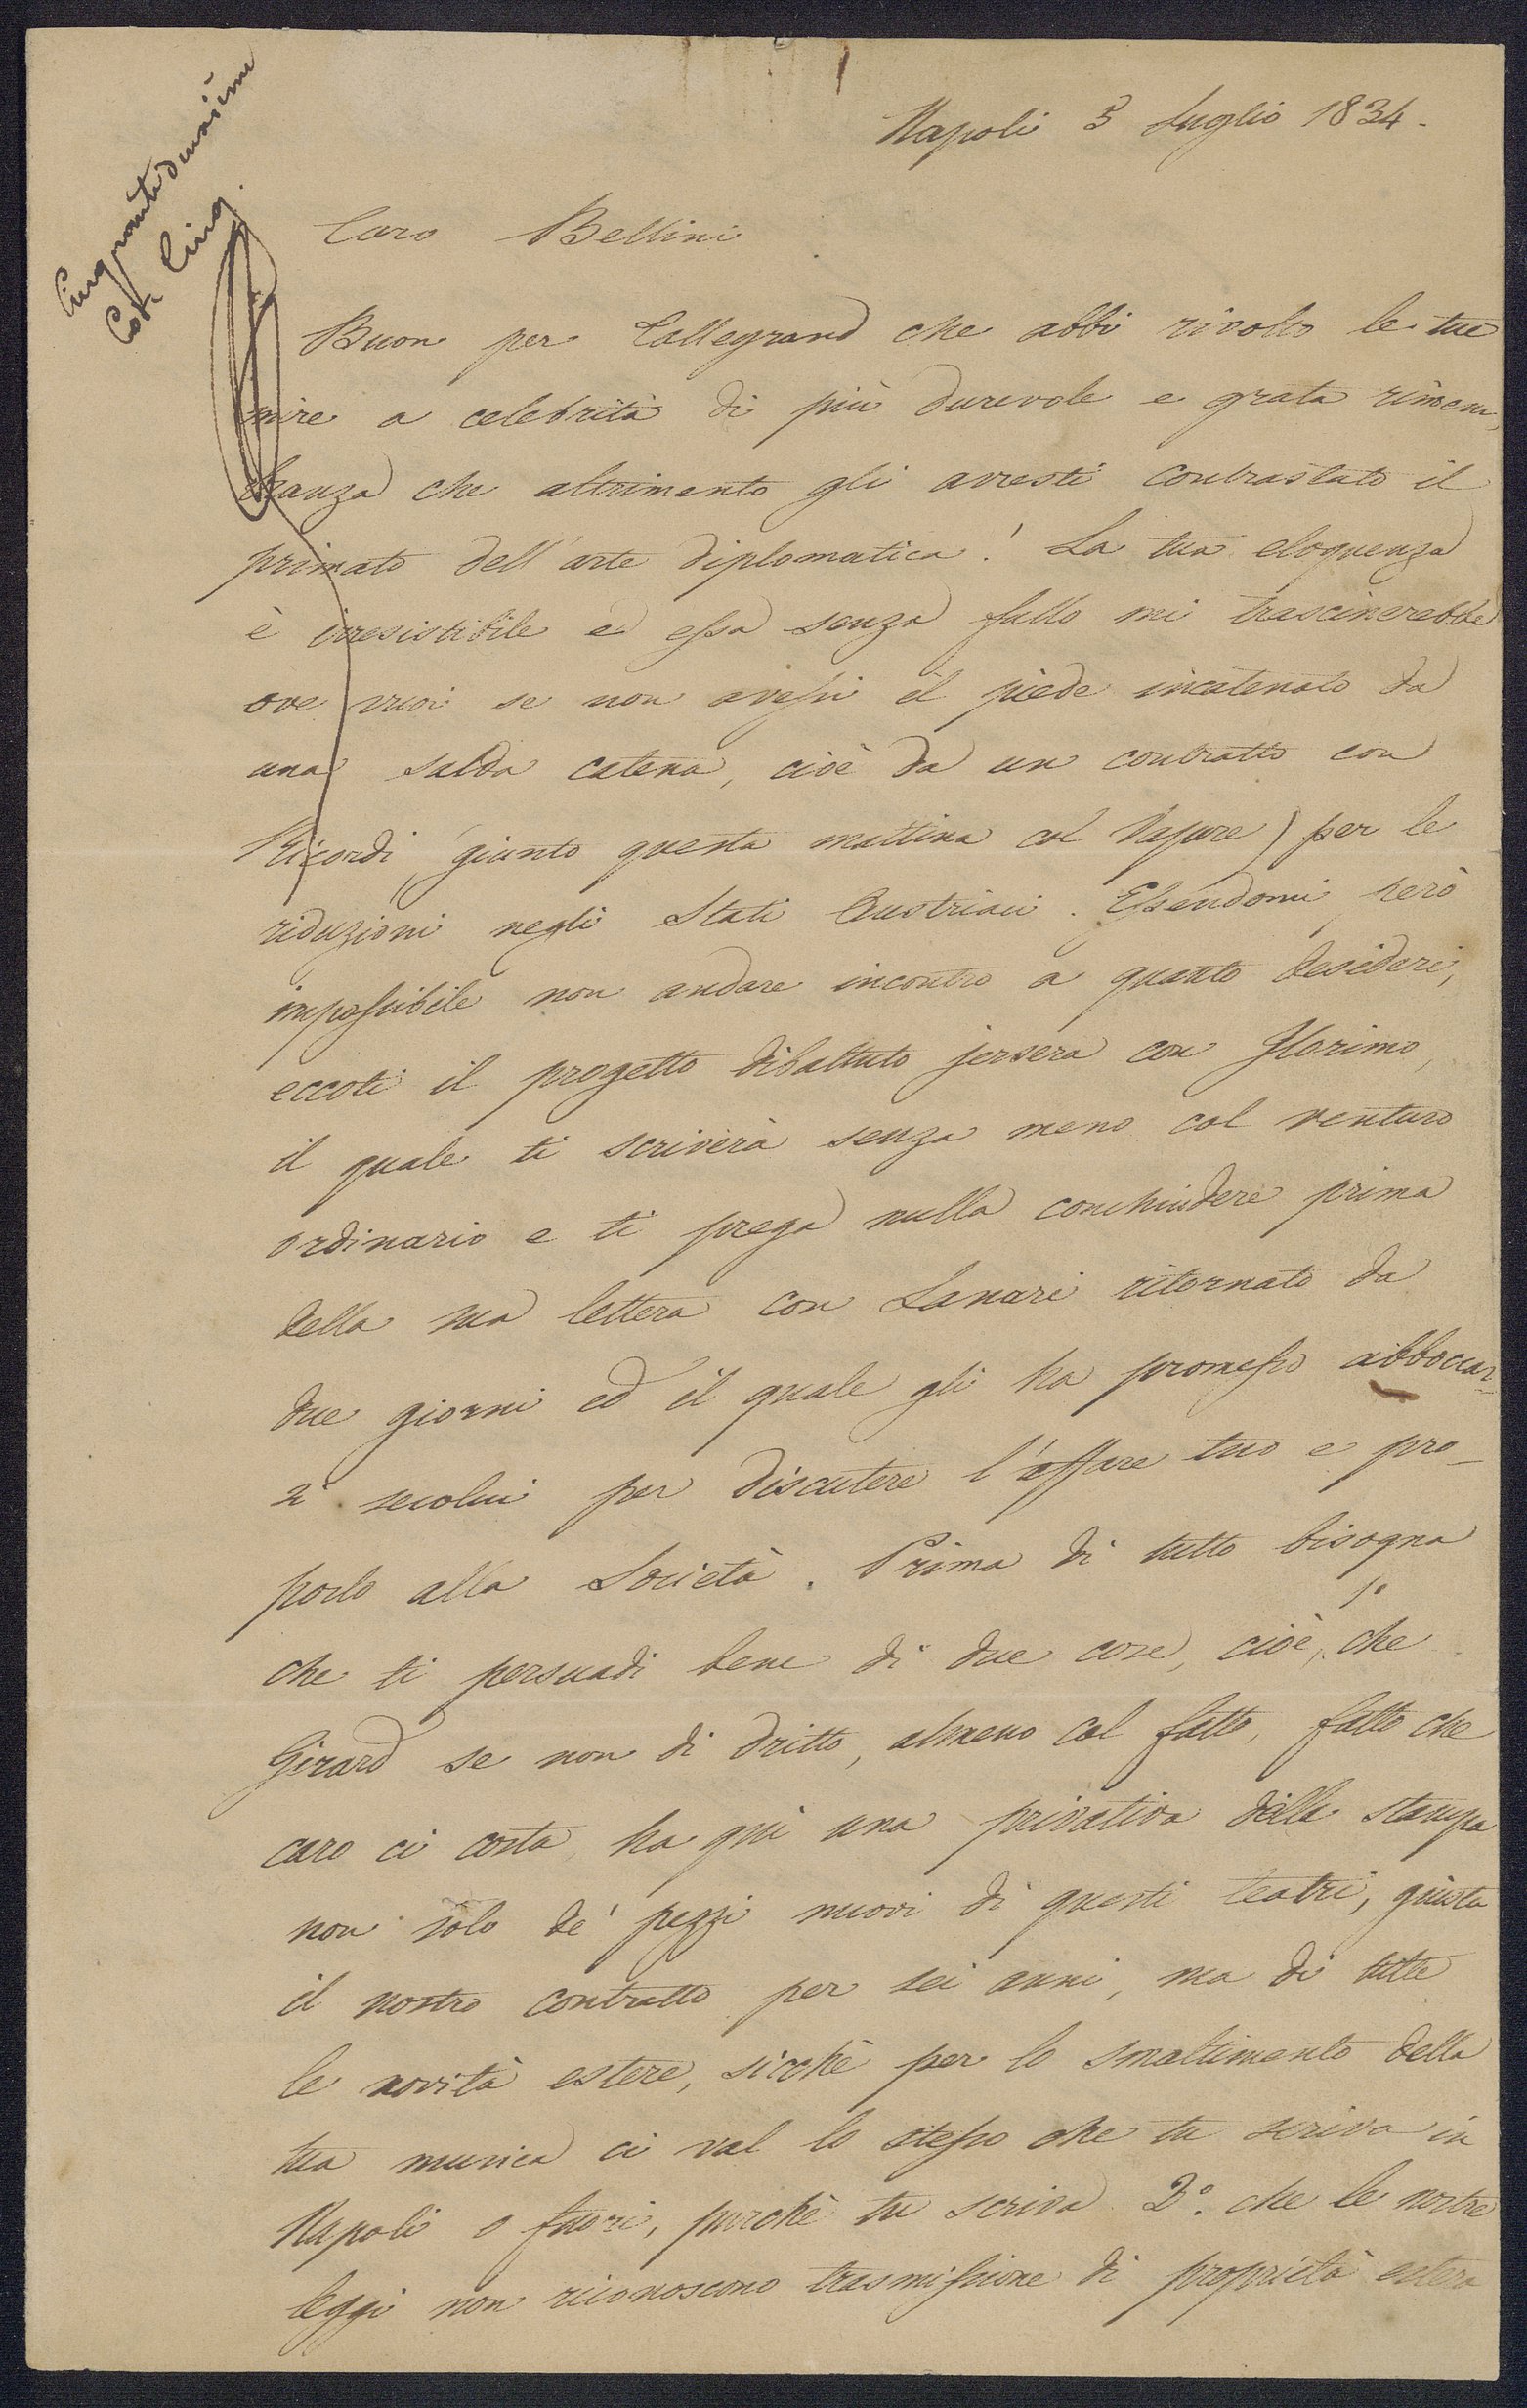 Cinquantadunesimo
Cost. Cinq.
Napoli 3 Luglio 1834.
Caro Bellini
Buon per Tallegrand che abbi rivolto le tue
mire a celebrità di più durevole e grata rimem,
branza che altrimento gli avresti contrastato il
primato dell'arte diplomatica! La tua eloquenza
è irresistibile e essa senza fallo mi trascinerebbe
ove vuoi se non avessi il piede incatenato da
una salda catena, cioè da un contratto con
Ricordi (giunto questa mattina col Vapore) per le
riduzioni negli Stati Austriaci. Essendomi però
impossibile non andare incontro a quanto desideri,
eccoti il progetto dibattuto jersera con Florimo,
il quale ti scriverà senza meno col venturo
ordinario e ti prega nulla conchiudere prima
della sua lettera con Lanari ritornato da
due giorni ed il quale gli ha promesso abboccar-
si secolui per discutere l'affare tuo e pro-
porlo alla Società. Prima di tutto bisogna
che ti persuadi bene di due cose, cioè, 1º che
Girard se non di dritto, almeno col fatto, fatto che
caro ci costa, ha qui una privativa della stampa
non solo de' pezzi nuovi di questi teatri, giusta
il nostro contratto per sei anni, ma di tutte
le novità estere, sicchè per lo smaltimento della
tua musica ci val lo stesso che tu scriva in
Napoli o fuori, purchè tu scriva. 2º. che le nostre
leggi non riconoscono trasmissione di proprietà estera